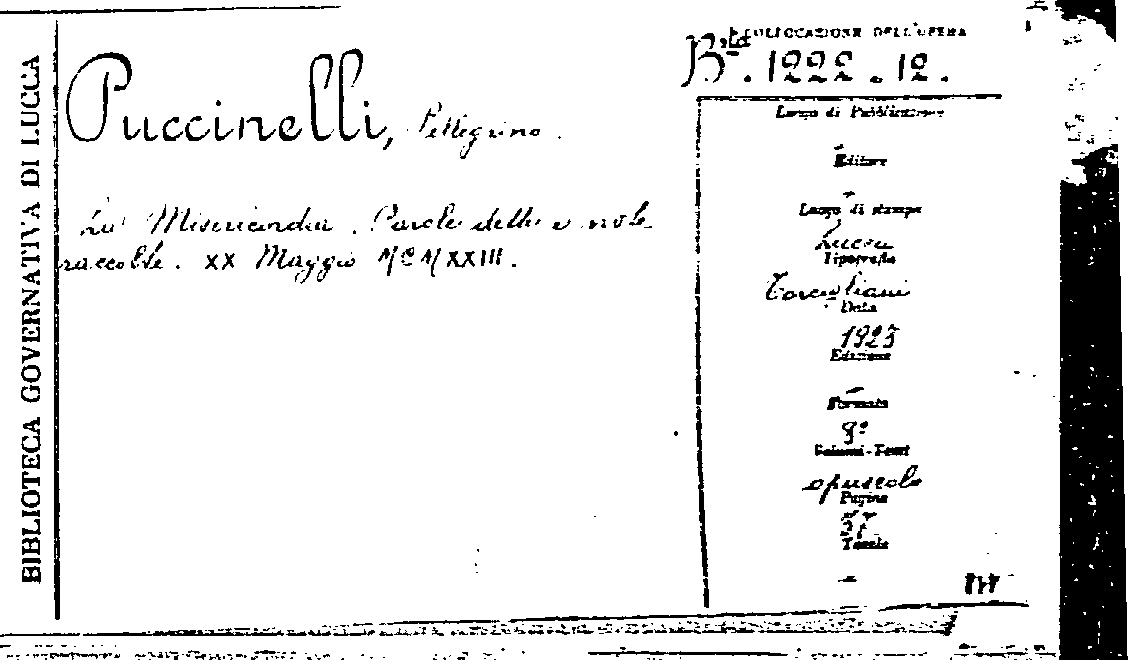 BIBLIOTECA GOVERNATIVA DI LUCCA
Puccinelli, Pellegrino.
La Misericordia. Parole dette e note
raccolte. XX Maggio MCMXXIII.
COLLOCAZIONE DELL'OPERA
Bta. 1222.12.
Luogo di Pubblicazione
-
Editore
-
Luogo di stampa
Lucca
Tipografia
Torcigliani
Data
1923
Edizione
-
Formato
8º
Volumi-Tomi
opuscolo
Pagine
37
Tavole
-